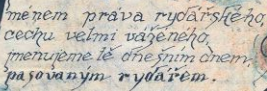 ménem práva rybářského,
cechu velmi váženého,
jmenujeme tě dnešním dnem,
pasovaným rybářem.